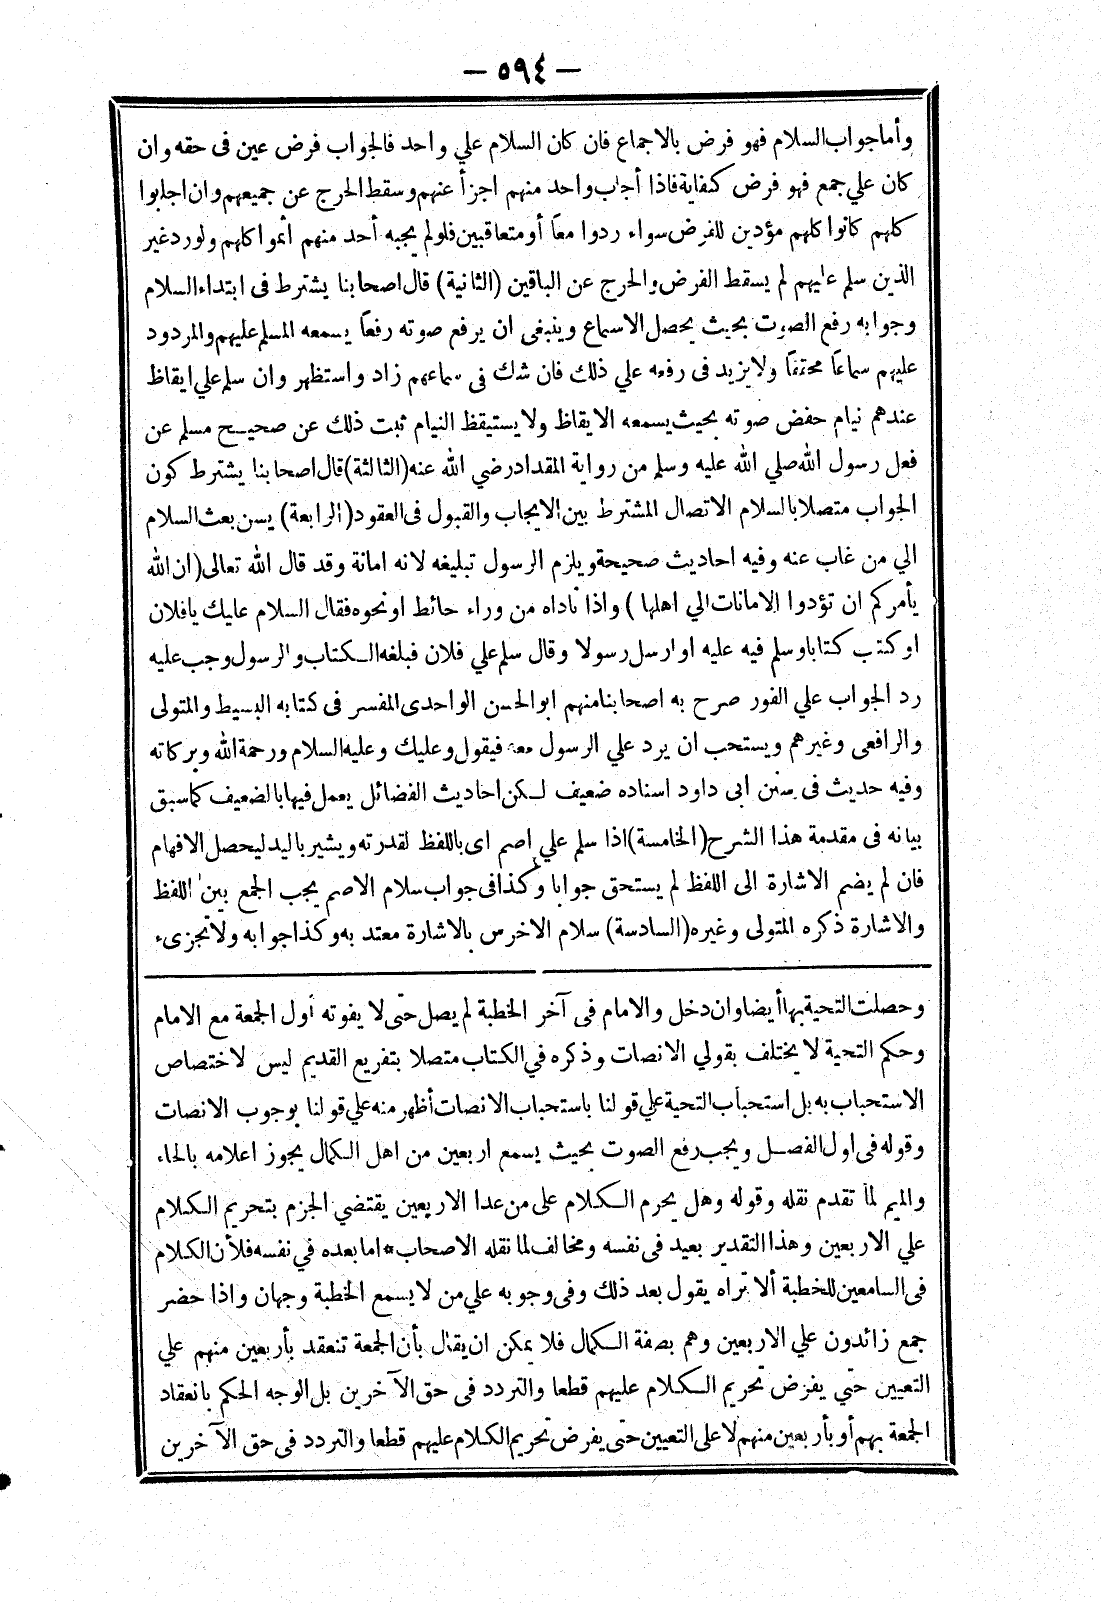 — ٥٩٤ —
وأما جواب السلام فهو فرض بالاجماع فان كان السلام علي واحد فالجواب فرض عين فى حقه وان
كان علي جمع فهو فرض كفاية فاذا أجاب واحد منهم اجزأ عنهم وسقط الحرج عن جميعهم وان اجابوا
كلهم كانوا كلهم مؤدين للفرض سواء ردوا معا أو متعاقبين فلو لم يجبه أحد منهم أثموا كلهم ولو رد غير
الذين سلم عليهم لم يسقط الفرض والحرج عن الباقين (الثانية) قال اصحابنا يشترط فى ابتداء السلام
وجوابه رفع الصوت بحيث يحصل الاسماع وينبغى ان يرفع صوته رفعا يسمعه المسلم عليهم والمردود
عليهم سماعا محققا ولا يزيد فى رفعه علي ذلك فان شك فى سماعهم زاد واستظهر وان سلم علي ايقاظ
عندهم نيام خفض صوته بحيث يسمعه الايقاظ ولا يستيقظ النيام ثبت ذلك عن صحيح مسلم عن
فعل رسول الله صلي الله عليه وسلم من رواية المقداد رضي الله عنه (الثالثة) قال اصحابنا يشترط كون
الجواب متصلا بالسلام الاتصال المشترط بين الايجاب والقبول فى العقود (الرابعة) يسن بعث السلام
الي من غاب عنه وفيه احاديث صحيحة ويلزم الرسول تبليغه لانه امانة وقد قال الله تعالى (ان الله
يأمركم ان تؤدوا الامانات الي اهلها) واذا ناداه من وراء حائط او نحوه فقال السلام عليك يا فلان
او كتب كتابا وسلم فيه عليه او ارسل رسولا وقال سلم علي فلان فبلغه الكتاب والرسول وجب عليه
رد الجواب علي الفور صرح به اصحابنا منهم ابو الحسن الواحدى المفسر فى كتابه البسيط والمتولى
والرافعى وغيرهم ويستحب ان يرد علي الرسول معه فيقول وعليك وعليه السلام ورحمة الله وبركاته
وفيه حديث فى سنن ابى داود اسناده ضعيف لكن احاديث الفضائل يعمل فيها بالضعيف كما سبق
بيانه فى مقدمة هذا الشرح (الخامسة) اذا سلم علي اصم اى باللفظ لقدرته ويشير باليد ليحصل الافهام
فان لم يضم الاشارة الى اللفظ لم يستحق جوابا وكذا فى جواب سلام الاصم يجب الجمع بين اللفظ
والاشارة ذكره المتولى وغيره (السادسة) سلام الاخرس بالاشارة معتد به وكذا جوابه ولا تجزىء
وحصلت التحية بها أيضا وان دخل والامام فى آخر الخطبة لم يصل حتى لا يفوته أول الجمعة مع الامام
وحكم التحية لا يختلف بقولي الانصات وذكره في الكتاب متصلا بتفريع القديم ليس لاختصاص
الاستحباب به بل استحباب التحية علي قولنا باستحباب الانصات أظهر منه علي قولنا بوجوب الانصات
وقوله فى اول الفصل ويجب رفع الصوت بحيث يسمع اربعين من اهل الكمال يجوز اعلامه بالحاء
والميم لما تقدم نقله وقوله وهل يحرم الكلام على من عدا الاربعين يقتضي الجزم بتحريم الكلام
علي الاربعين وهذا التقدير بعيد فى نفسه ومخالف لما نقله الاصحاب * اما بعده في نفسه فلأن الكلام
فى السامعين للخطبة ألا تراه يقول بعد ذلك وفى وجوبه علي من لا يسمع الخطبة وجهان واذا حضر
جمع زائدون علي الاربعين وهم بصفة الكمال فلا يمكن ان يقال بأن الجمعة تنعقد بأربعين منهم علي
التعيين حتي يفرض تحريم الكلام عليهم قطعا والتردد فى حق الآخرين بل الوجه الحكم بانعقاد
الجمعة بهم أو بأربعين منهم لا على التعيين حتى يفرض تحريم الكلام عليهم قطعا والتردد فى حق الآخرين